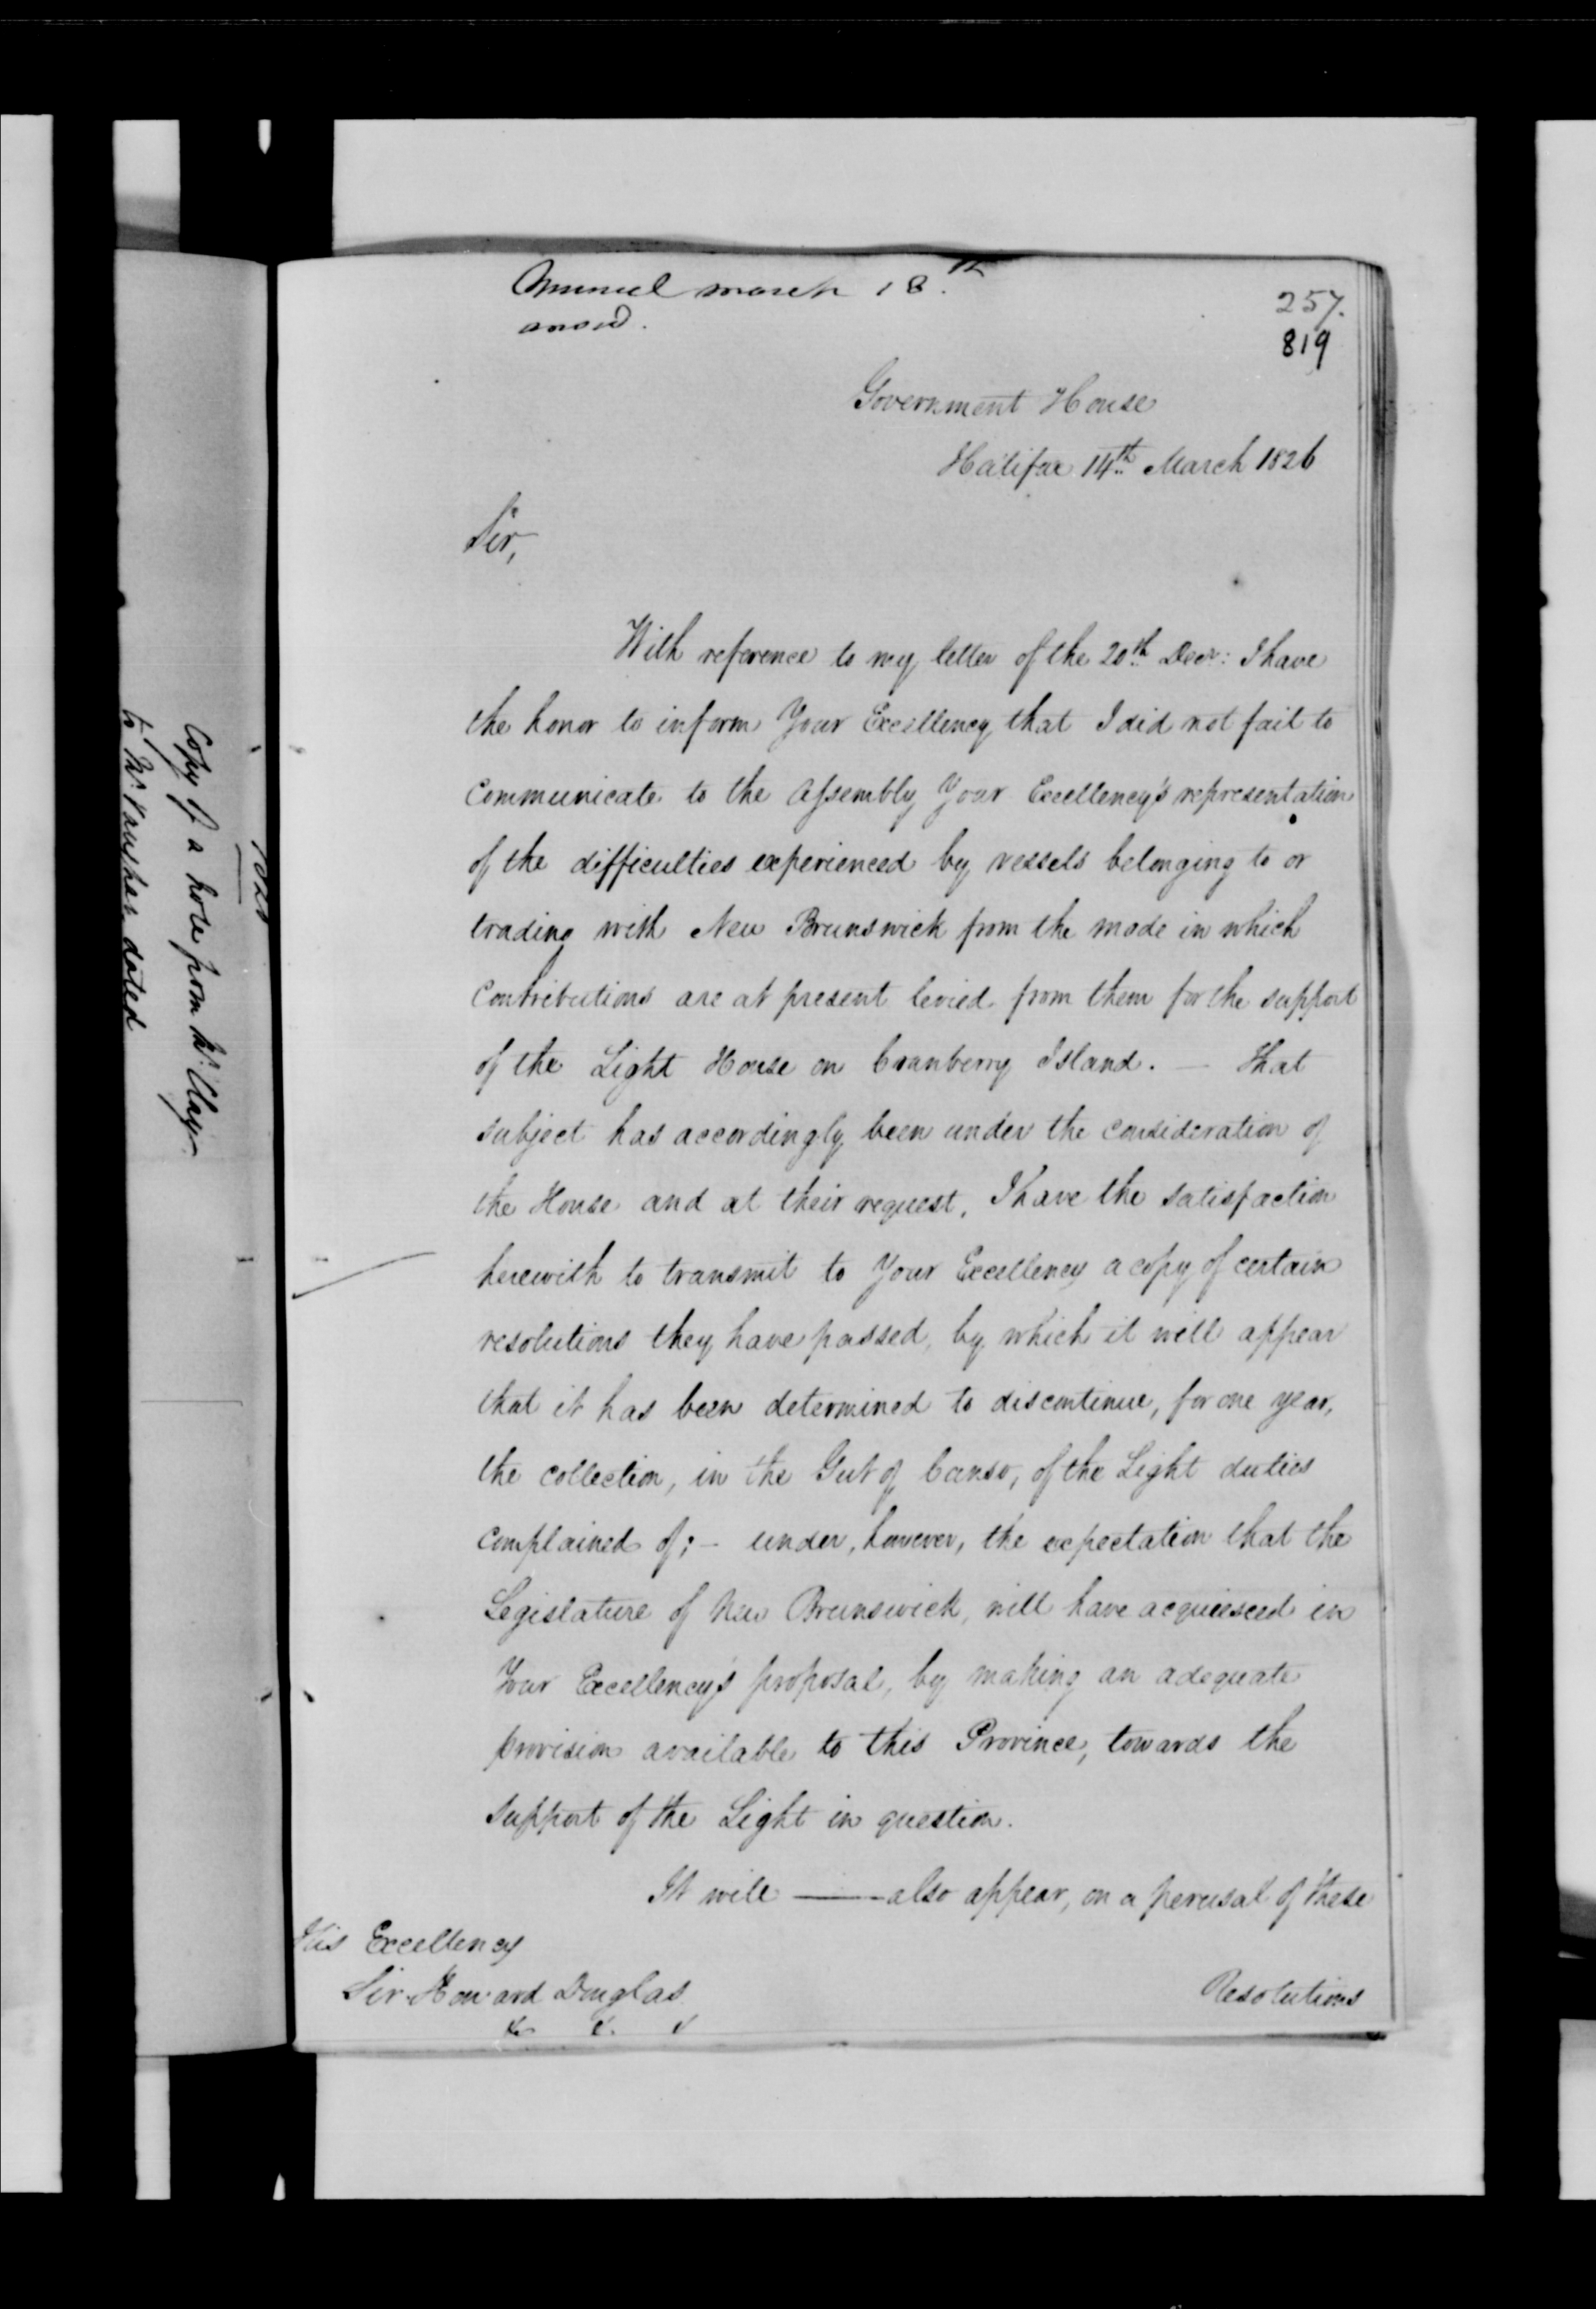 march 18th
ansd.
257.
819
Government House
Halifax 14th March 1826
Sir,
With reference to my letter of the 20th Decr: I have
the honor to inform Your Excellency that I did not fail to
communicate to the Assembly Your Excellency's representation
of the difficulties experienced by vessels belonging to or
trading with New Brunswick from the mode in which
Contributions are at present levied from them for the support
of the Light House on Cranberry Island. — That
subject has accordingly been under the consideration of
the House and at their request, I have the satisfaction
herewith to transmit to Your Excellency a copy of certain
resolutions they have passed, by which it will appear
that it has been determined to discontinue, for one year,
the collection, in the Gut of Canso, of the Light duties
complained of; – under, however, the expectation that the
Legislature of New Brunswick, will have acquiesced in
Your Excellency's proposal, by making an adequate
provision available to this Province, towards the
support of the Light in question.
It will —— also appear, on a perusal of these
His Excellency
Sir Howard Douglas
Resolutions
Copy of a note from Mr. Clay
to Mr. Vaughan dated